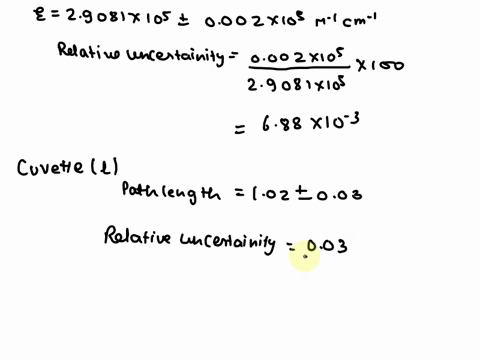 ε = 2.9081 × 10⁵ ± 0.002 × 10⁵ M⁻¹ cm⁻¹
Relative uncertainity = 0.002 × 10⁵ / 2.9081 × 10⁵ × 100
= 6.88 × 10⁻³
Cuvette (l)
Path length = 1.02 ± 0.03
Relative uncertainity = 0.03